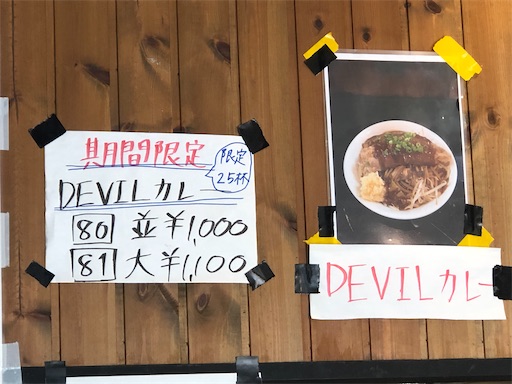 期間限定
限定
25杯
DEVILカレー
80 並 ¥1,000
81 大 ¥1,100
DEVILカレー